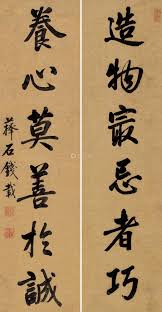 造物最忌者巧
養心莫善於誠
蘀石錢載